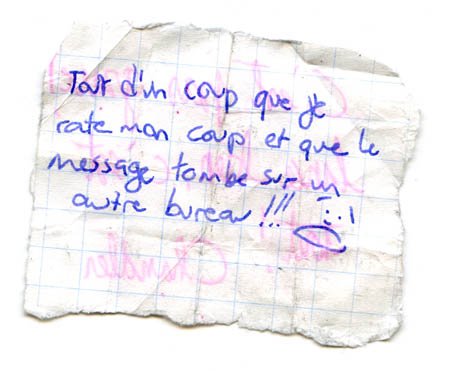 Tout d'un coup que je
rate mon coup et que le
message tombe sur un
autre bureau !!!
Chandler